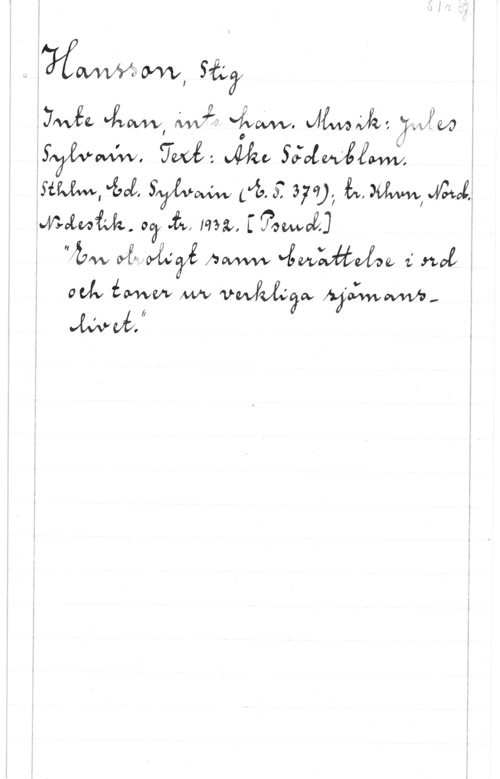 Hansson, Stig
Inte han, inte han. Musik: Jules
Sylvain. Text: Åke Söderblom.
Sthlm, Ed. Sylvain (E. S. 379); tr. Khvn, Nord.
Nodestik. og tr. 1932. [Pseud.]
"En obroligt sann berättelse i ord
och toner ur verkliga sjömans-
livet."